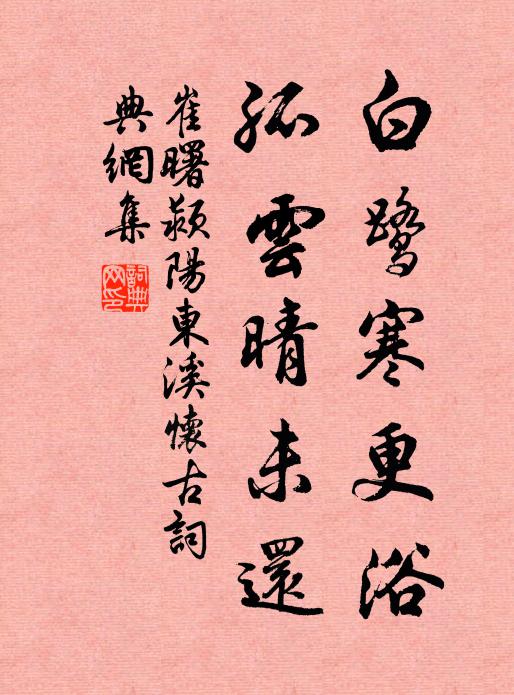 白鷺寒更浴
孤雲晴未還
崔曙潁陽東溪懷古詞
典網集
詞典網印